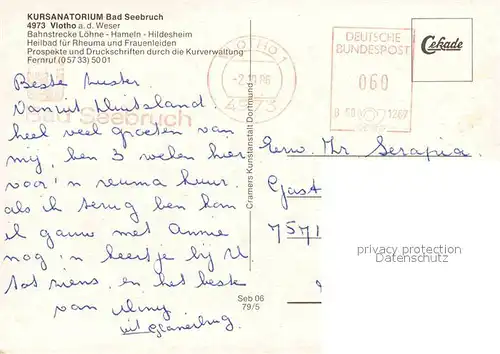 KURSANATORIUM Bad Seebruch
4973 Vlotho a. d. Weser
Bahnstrecke Löhne - Hameln - Hildesheim
Heilbad für Rheuma und Frauenleiden
Prospekte und Druckschriften durch die Kurverwaltung
Fernruf (0 57 33) 50 01
VLOTHO 1
4973
Bad Seebruch
DEUTSCHE
BUNDESPOST
060
Cekade
Beste Zuster
Vanuit Duitsland
heel veel groeten van
mij, ben 3 weken hier
voor 'n reuma kuur
als ik terug ben kom
ik gauw met Annie
nog 'n keertje bij U
tot ziens, en het beste
van
uit Glanerbrug
Cramers Kunstanstalt Dortmund
Seb 06
79/5
Eerw. Zr Serapia
Gast
7571
privacy protection
Datenschutz